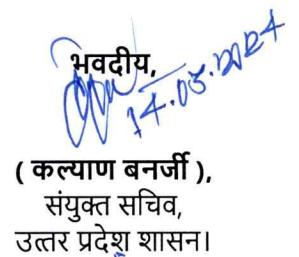 भवदीय,
14.05.2024
( कल्याण बनर्जी ),
संयुक्त सचिव,
उत्तर प्रदेश शासन।